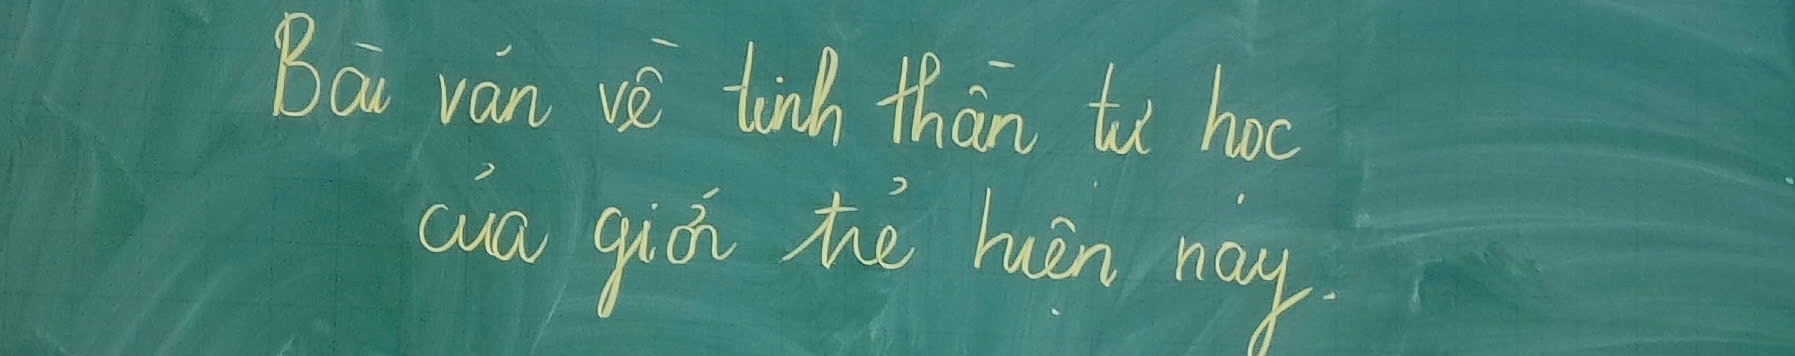 Bài ván về tinh thần tự học
của giới trẻ hiện nay.